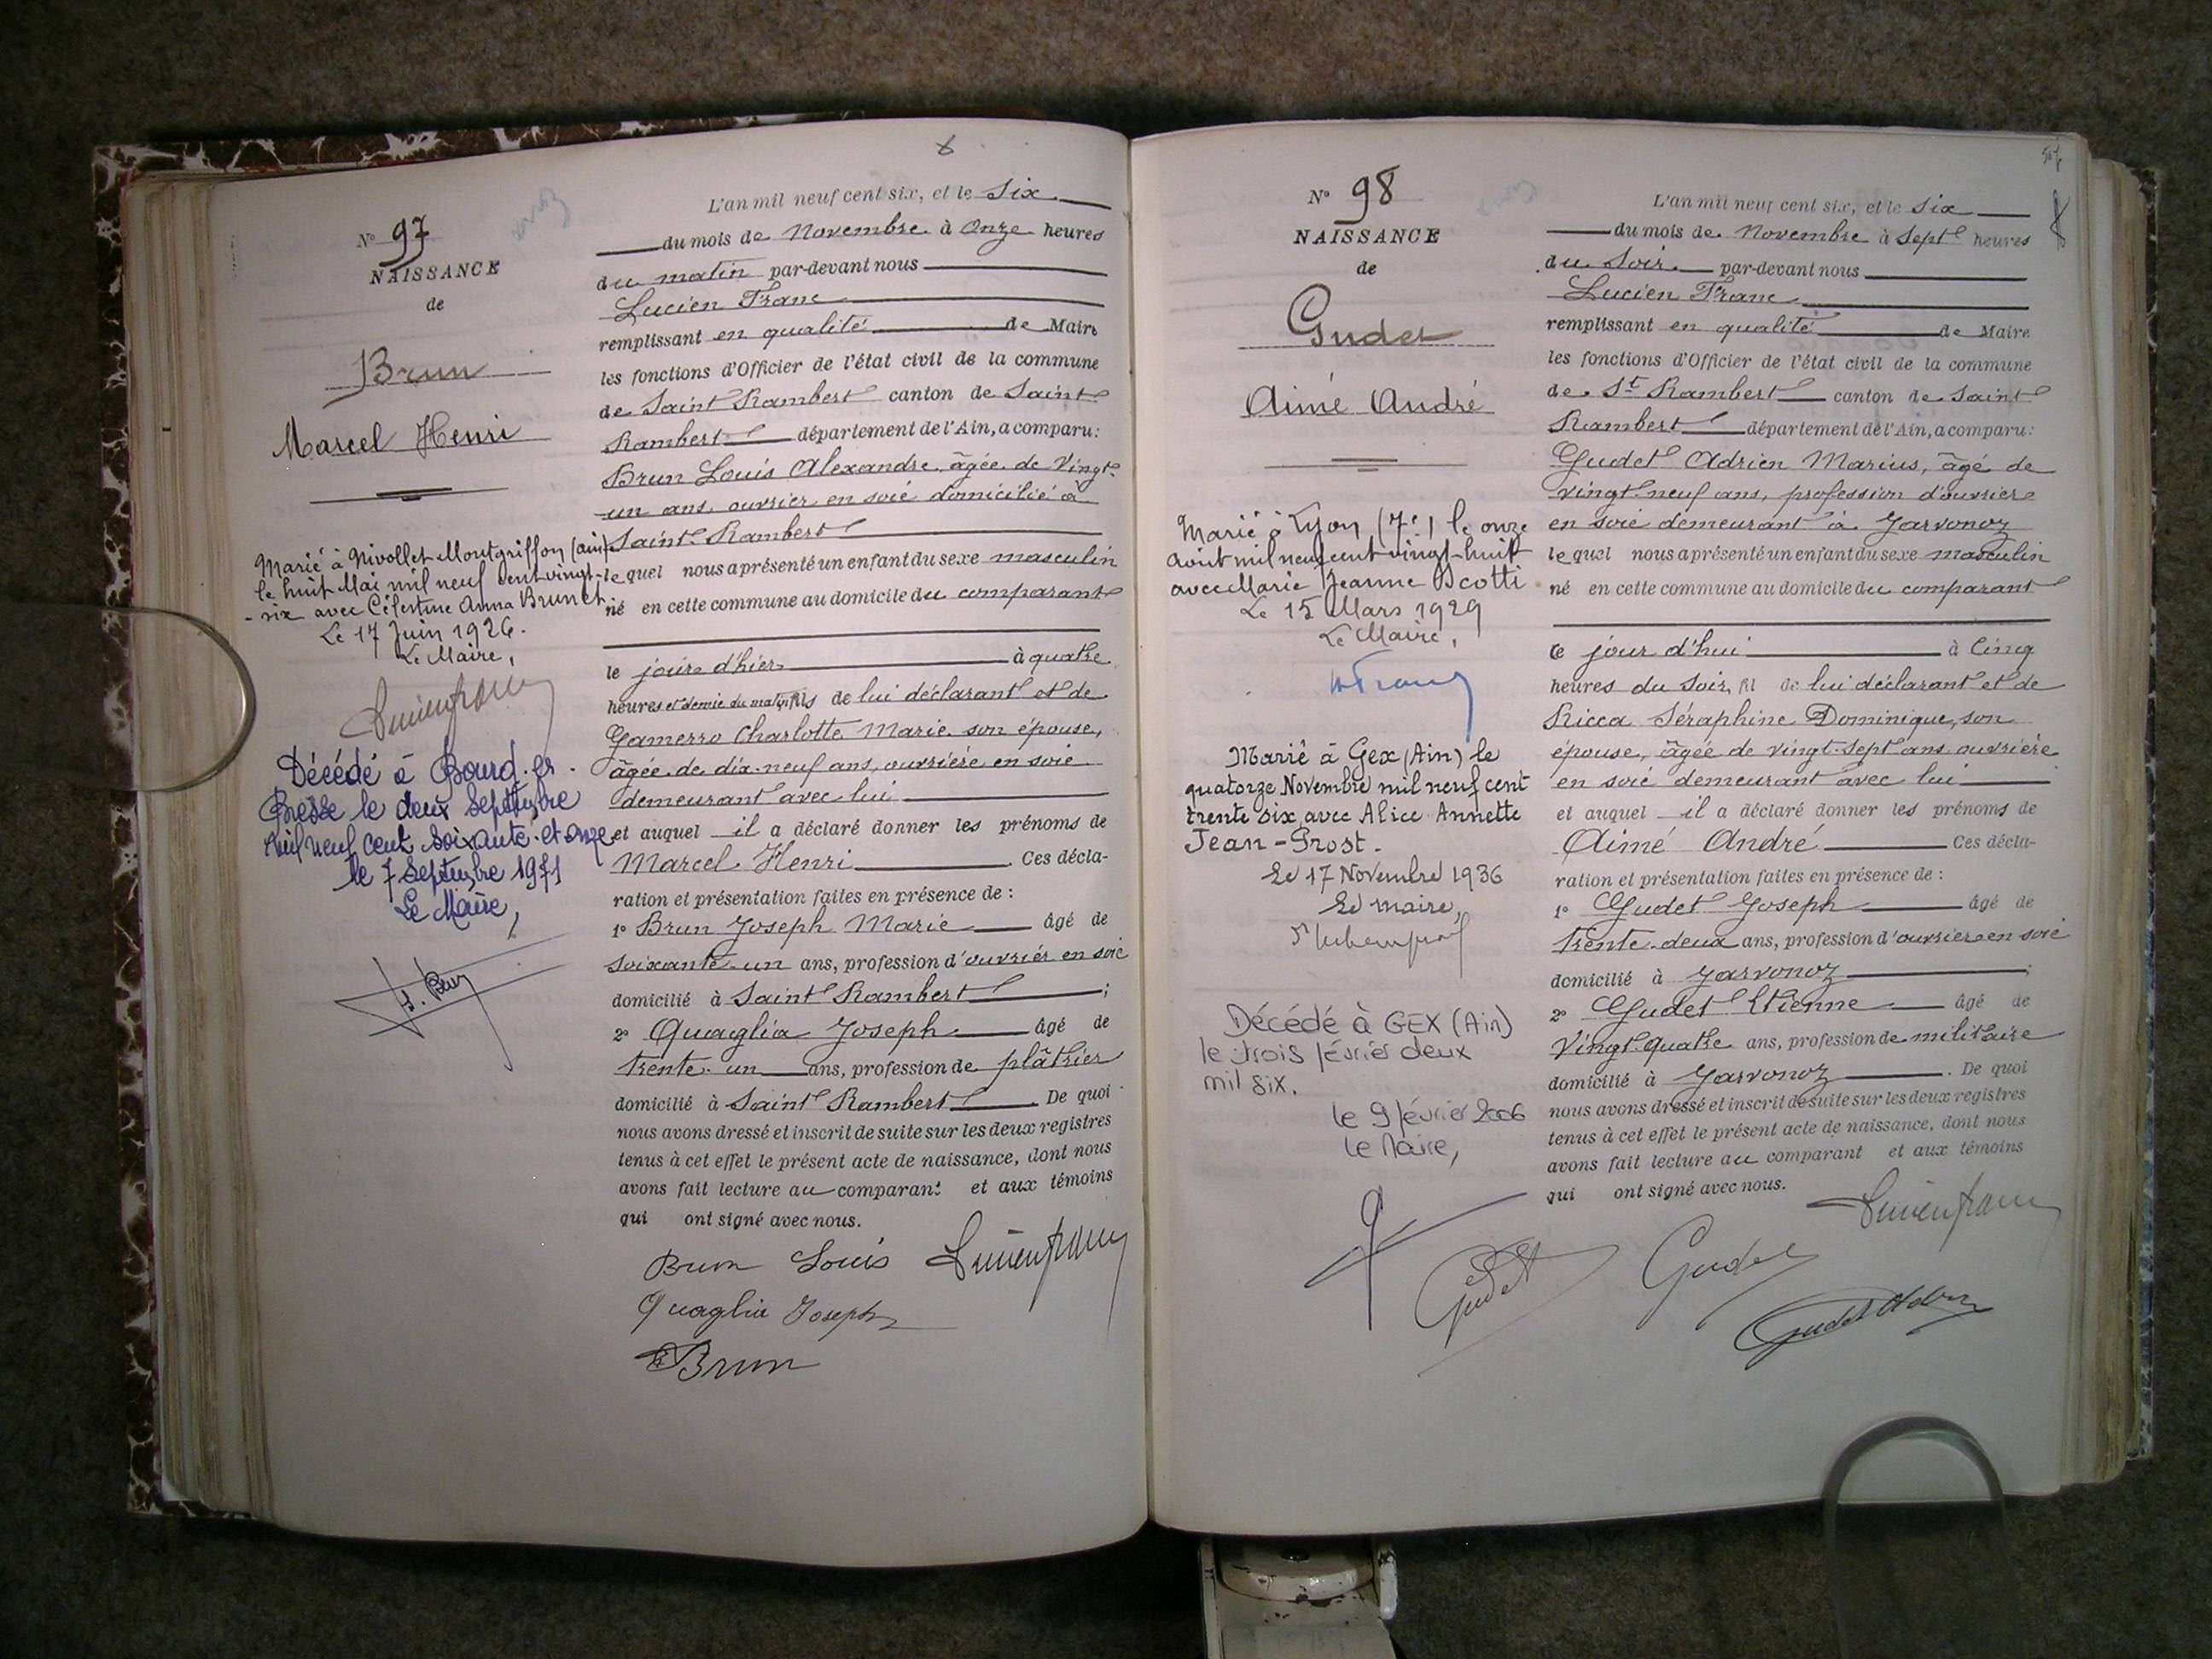 N° 97
NAISSANCE
de
Brun
Marcel Henri
Marié à Nivollet-Montgriffon (ain)
le huit Mai mil neuf cent vingt-
-six avec Célestine Anna Brunet.
Le 17 Juin 1926.
Le Maire,
Lucien Franc
Décédé à Bourg-en-
Bresse le deux Septembre
mil neuf cent soixante-et-onze
le 7 Septembre 1971
Le Maire,
L'an mil neuf cent six, et le Six
du mois de Novembre à Onze heures
du matin par-devant nous
Lucien Franc
remplissant en qualité de Maire
les fonctions d'Officier de l'état civil de la commune
de Saint Rambert canton de Saint
Rambert département de l'Ain, a comparu:
Brun Louis Alexandre, âgée de Vingt-
un ans, ouvrier en soie domicilié à
Saint-Rambert
lequel nous a présenté un enfant du sexe masculin
né en cette commune au domicile du comparant
le jour d'hier à quatre
heures et demie du matin fils de lui déclarant et de
Gamerro Charlotte Marie son épouse,
âgée de dix-neuf ans, ouvrière en soie
demeurant avec lui
et auquel il a déclaré donner les prénoms de
Marcel Henri. Ces décla-
ration et présentation faites en présence de :
1° Brun Joseph Marie âgé de
soixante-un ans, profession d'ouvrier en soie
domicilié à Saint Rambert ;
2° Quaglia Joseph âgé de
trente-un ans, profession de plâtrier
domicilié à Saint Rambert. De quoi
nous avons dressé et inscrit de suite sur les deux registres
tenus à cet effet le présent acte de naissance, dont nous
avons fait lecture au comparant et aux témoins
qui ont signé avec nous.
Brun Louis Lucien Franc
Quaglia Joseph
Brun
N° 98
NAISSANCE
de
Gudet
Aimé André
Marié à Lyon (7e) le onze
août mil neuf cent vingt-huit
avec Marie Jeanne Scotti
Le 15 Mars 1929
Le Maire,
Marié à Gex (Ain) le
quatorze Novembre mil neuf cent
trente six, avec Alice Annette
Jean-Prost.
Le 17 Novembre 1936
Le maire,
Décédé à GEX (Ain)
le trois février deux
mil six.
le 9 février 2006
le Maire,
L'an mil neuf cent six, et le Six
du mois de Novembre à Sept heures
du Soir par-devant nous
Lucien Franc
remplissant en qualité de Maire
les fonctions d'Officier de l'état civil de la commune
de St Rambert canton de Saint
Rambert département de l'Ain, a comparu:
Gudet Adrien Marius, âgé de
vingt-neuf ans, profession d'ouvrier
en soie demeurant à Javornoz
lequel nous a présenté un enfant du sexe masculin
né en cette commune au domicile du comparant
ce jour d'hui à Cinq
heures du Soir, fil de lui déclarant et de
Ricca Séraphine Dominique, son
épouse, âgée de vingt-sept ans ouvrière
en soie demeurant avec lui
et auquel il a déclaré donner les prénoms de
Aimé André Ces décla-
ration et présentation faites en présence de :
1° Gudet Joseph âgé de
trente-deux ans, profession d'ouvrier en soie
domicilié à Javornoz ;
2° Gudet Etienne âgé de
Vingt-quatre ans, profession de militaire
domicilié à Javornoz. De quoi
nous avons dressé et inscrit de suite sur les deux registres
tenus à cet effet le présent acte de naissance, dont nous
avons fait lecture au comparant et aux témoins
qui ont signé avec nous.
Lucien Franc
Gudet Gudet
Gudet Adrien